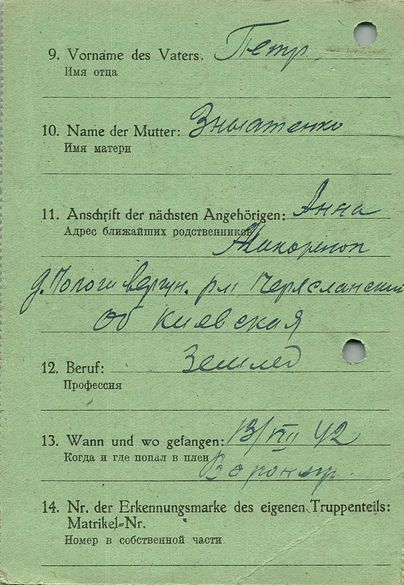 9. Vorname des Vaters. Петр
Имя отца
10. Name der Mutter: Знматенко
Имя матери
11. Anschrift der nächsten Angehörigen: Анна
Адрес ближайших родственников
д. Пологи вергун. рн Черяславский
об Киевская
12. Beruf: Землед
Профессия
13. Wann und wo gefangen: 13/VII 42
Когда и где попал в плен
14. Nr. der Erkennungsmarke des eigenen Truppenteils:
Matrikel-Nr.
Номер в собственной части